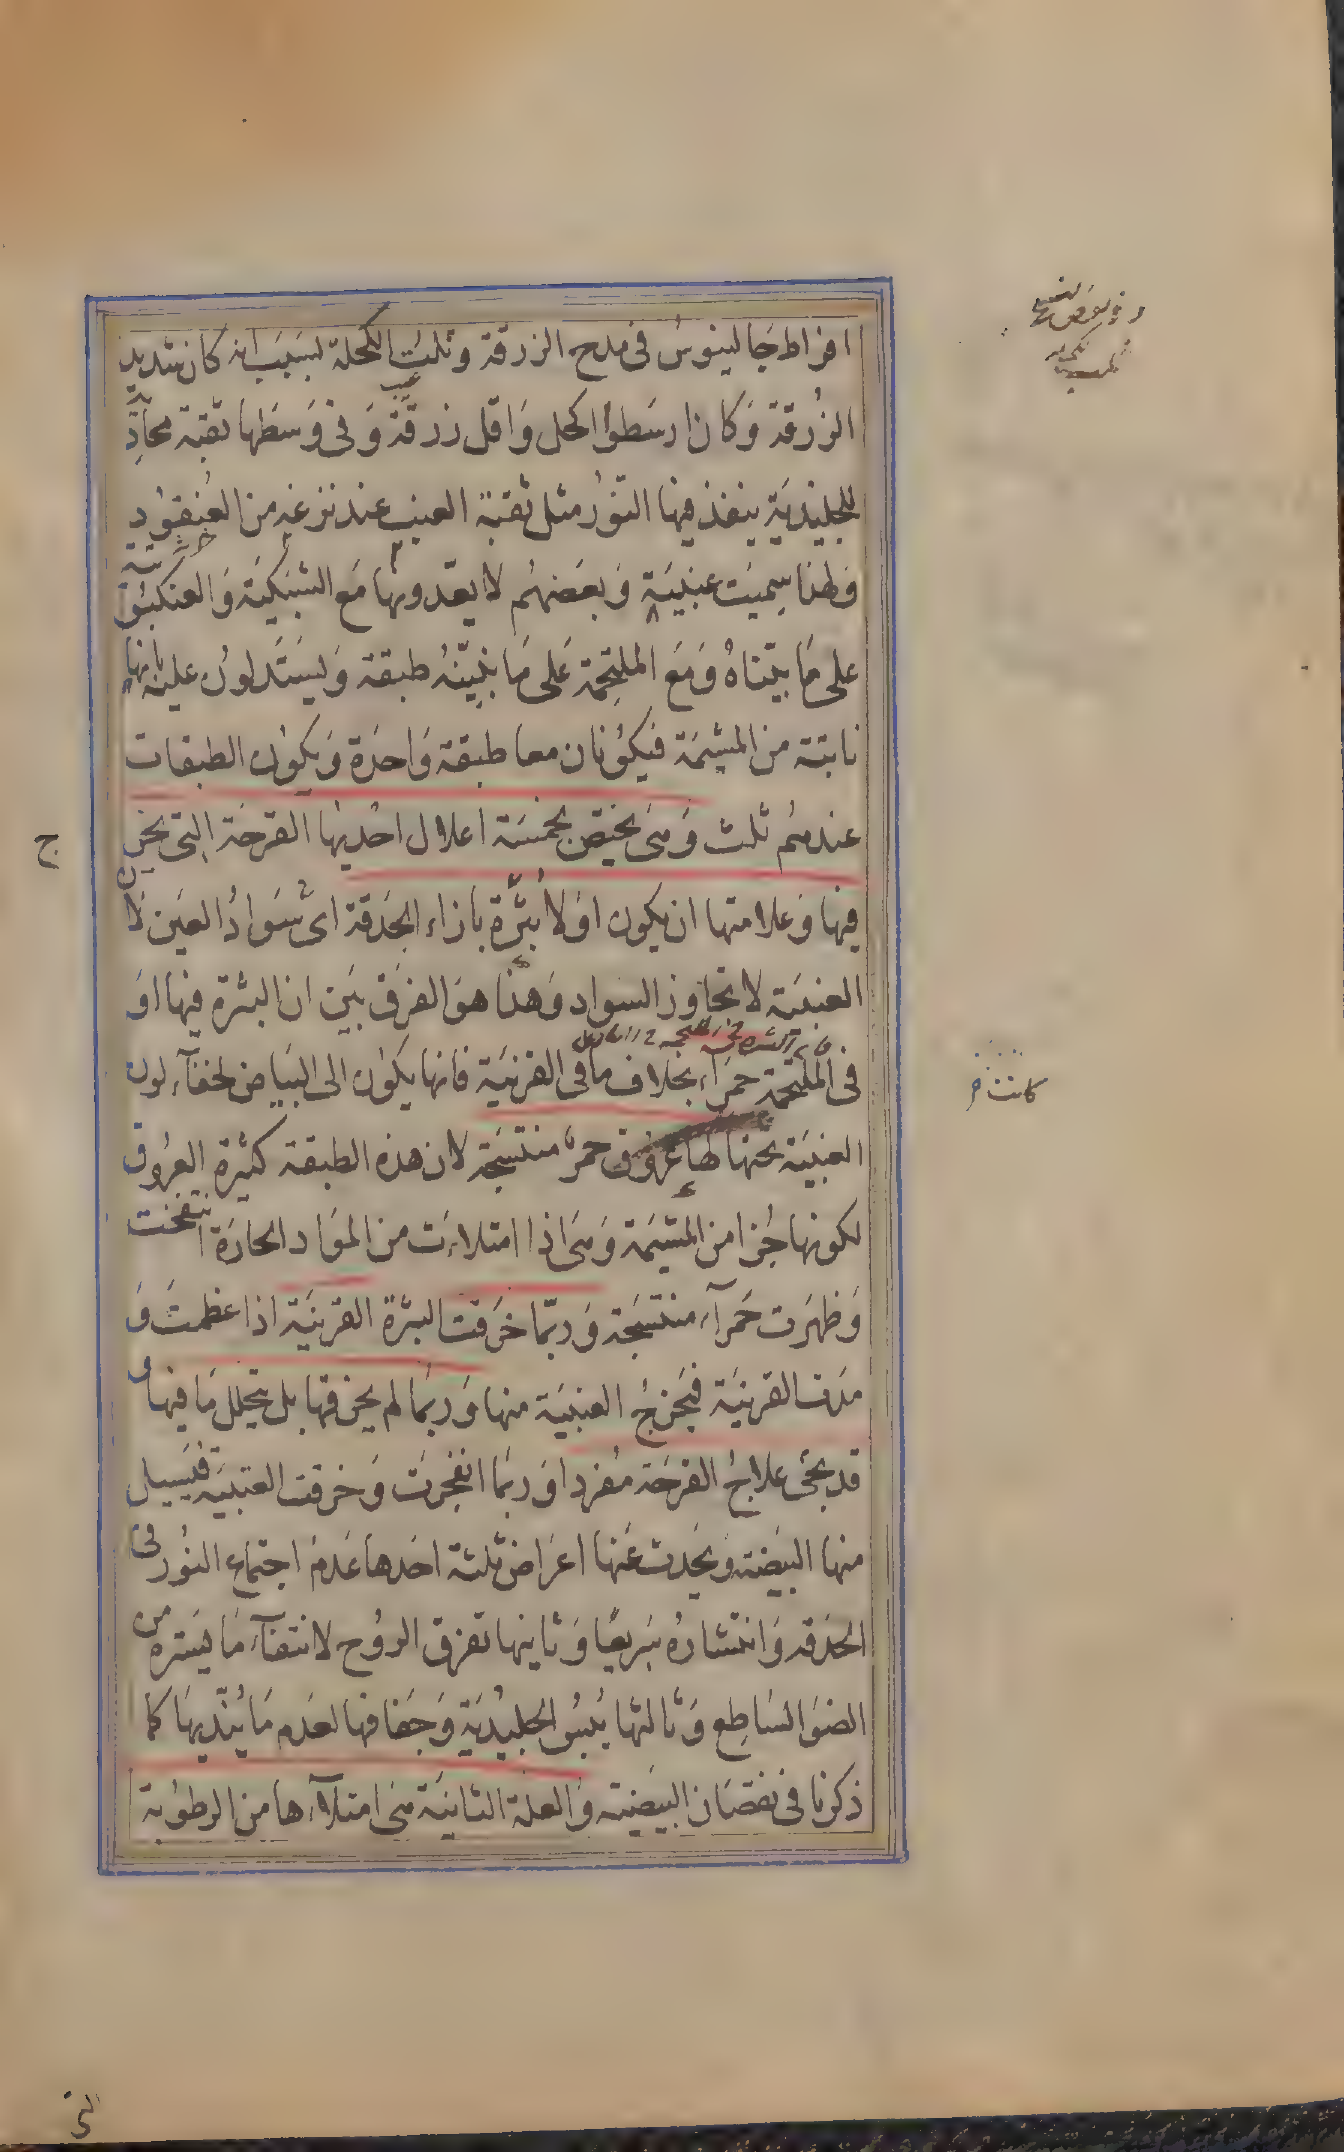 افراط جالينوس فى مدح الزرقة وثلب الكحلة بسبب انه كان شديد
الزرقة وكان ارسطو اكحل واقل زرقة وفى وسطها ثقبة محاذية
للجليدية ينفذ فيها النور مثل ثقبة العنب عند نزعه من العنقود
ولهذا سميت عنبية وبعضهم لا يعدونها مع الشبكية والعنكبوتية
على ما بيناه ومع الملتحمة على ما نبينه طبقة ويستدلون عليه بانها
نابتة من المشيمة فيكونان معا طبقة واحدة ويكون الطبقات
عندهم ثلث وهى يختص بخمسة اعلال احديها القرحة التى يخرج
فيها وعلامتها ان يكون اولا بثرة بازاء الحدقة اى سواد العين لان
العنبية لا تجاوز السواد وهذا هو الفرق بين ان البثرة فيها او
فى الملتحمة حمرآء بخلاف ما فى القرنية فانها يكون الى البياض لخفآء لون
العنبية تحتها لها عروق حمر منتسجة لان هذه الطبقة كثيرة العروق
لكونها جزا من المشيمة وهى اذا امتلاءت من المواد الحارة انتفخت
وظهرت حمرآء منتسجة وربما خرقت البثرة القرنية اذا عظمت و
مدت القرنية فيخرج العنبية منها وربما لم يخرقها بل يتحلل ما فيها و
قد يجئ علاج القرحة مفردا وربما انفجرت وخرقت العنبية فيسيل
منها البيضية ويحدث عنها اعراض ثلثة احدها عدم اجتماع النور فى
الحدقة وانتشاره سريعا وثانيها تفرق الروح لانتفآء ما يستره من
الضو الساطع وثالثها يبس الجليدية وجفافها لعدم ما ينديها كما
ذكرنا فى نقصان البيضية والعلة الثانية هى امتلآءها من الرطوبة
ج
كانت
التى